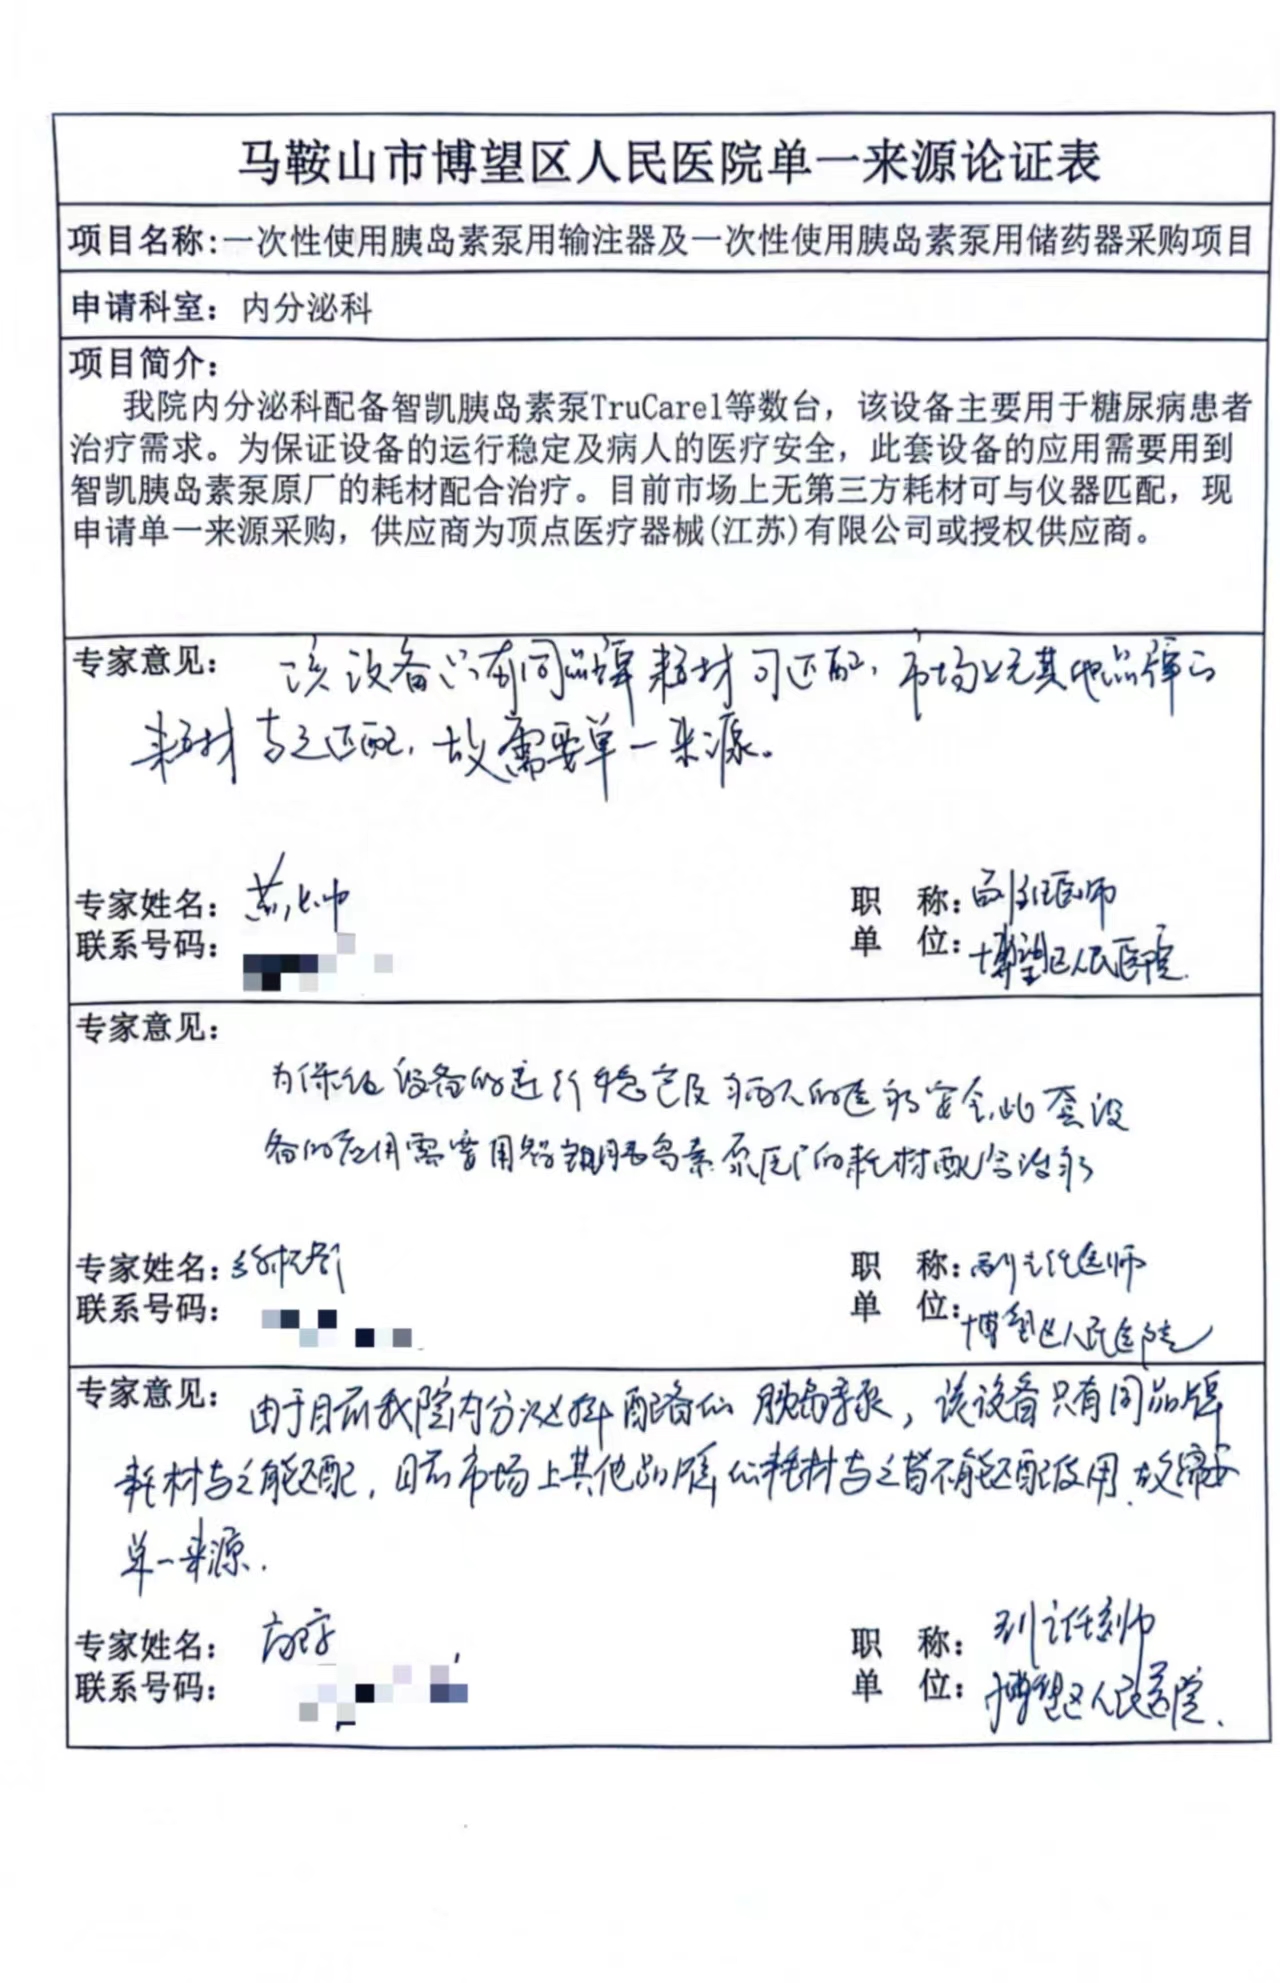 马鞍山市博望区人民医院单一来源论证表
项目名称:一次性使用胰岛素泵用输注器及一次性使用胰岛素泵用储药器采购项目
申请科室：内分泌科
项目简介：
我院内分泌科配备智凯胰岛素泵TruCare1等数台，该设备主要用于糖尿病患者
治疗需求。为保证设备的运行稳定及病人的医疗安全，此套设备的应用需要用到
智凯胰岛素泵原厂的耗材配合治疗。目前市场上无第三方耗材可与仪器匹配，现
申请单一来源采购，供应商为顶点医疗器械(江苏)有限公司或授权供应商。
专家意见：该设备只有同品牌耗材可匹配，市场上无其他品牌的
耗材与之匹配，故需要单一来源。
专家姓名：
职 称：副主任医师
联系号码：
单 位：博望区人民医院.
专家意见：
为保证设备的运行稳定及病人的医疗安全,此套设
备的应用需要用智凯胰岛素泵原厂的耗材配合治疗
专家姓名：
职 称：副主任医师
联系号码：
单 位：博望区人民医院
专家意见：由于目前我院内分泌科配备的胰岛素泵，该设备只有同品牌
耗材与之能匹配，目前市场上其他品牌的耗材与之皆不能匹配使用.故需要
单一来源.
专家姓名：
职 称：副主任
联系号码：
单 位：博望区人民医院.